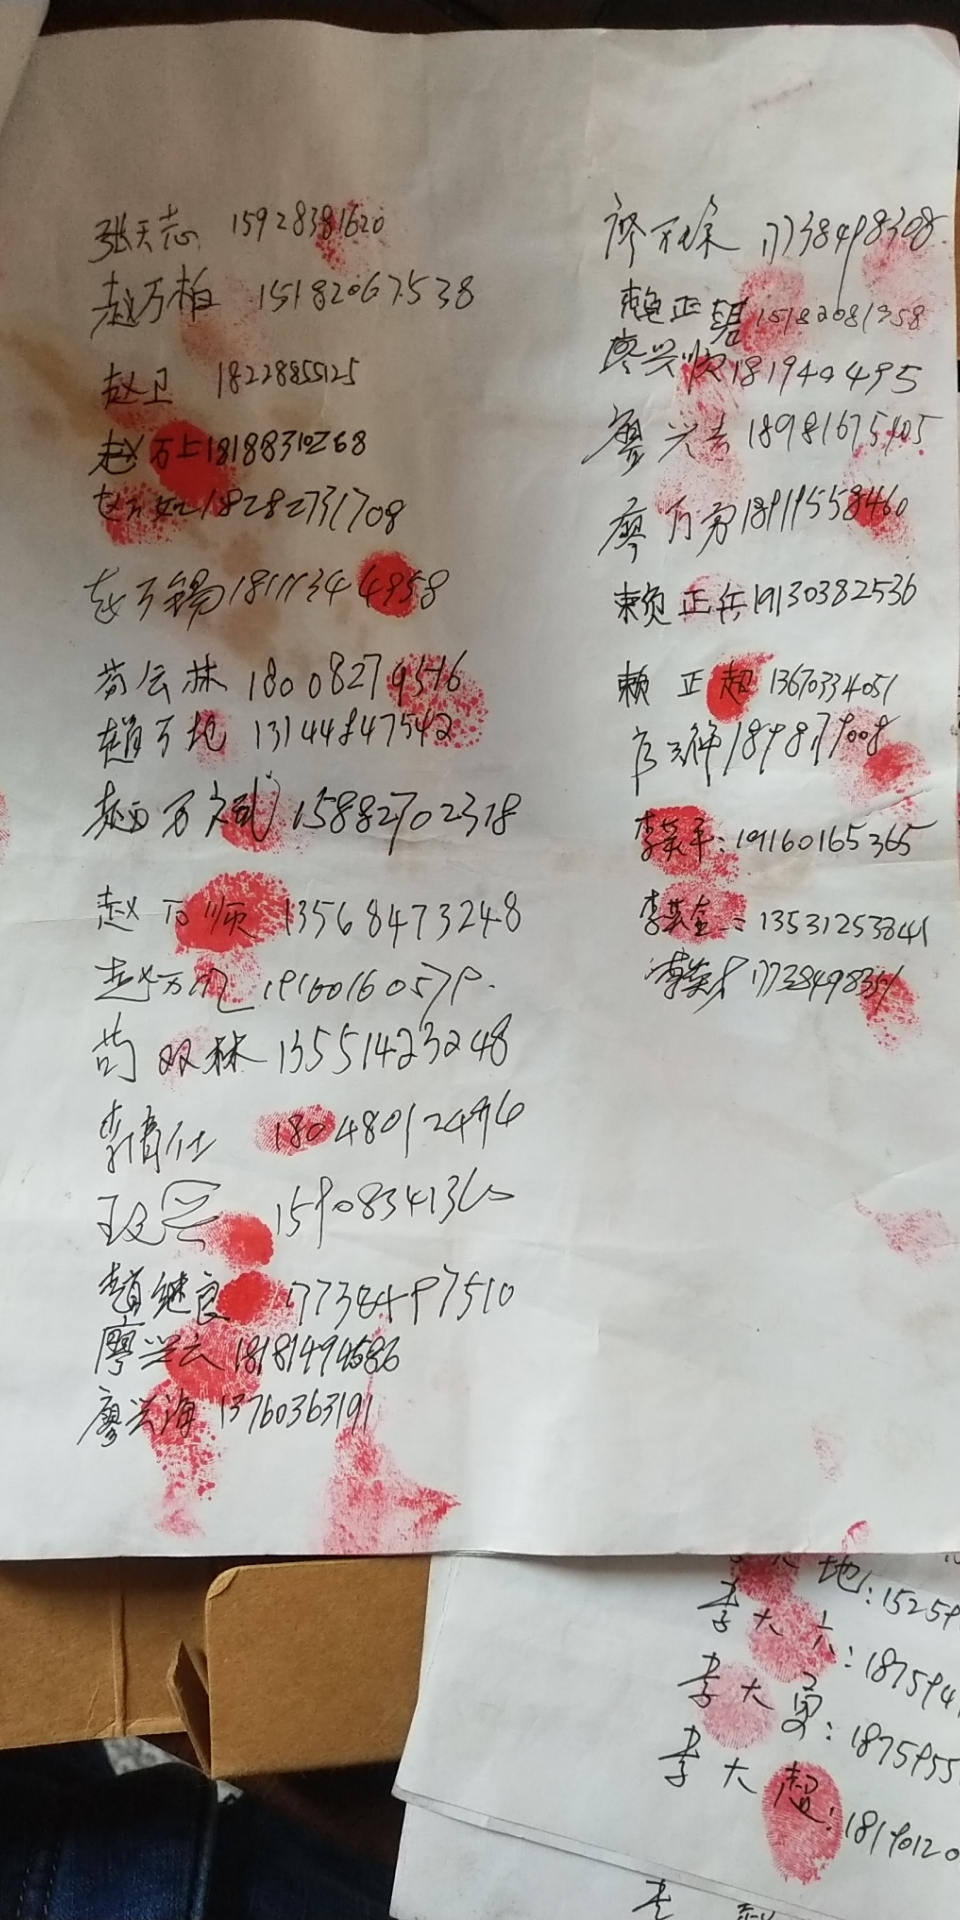 张天志 15928381620
赵万柏 15182067538
赵卫 18228855125
赵万上 18188310268
赵万 18282731708
赵万锡 18111344958
苟云林 18008279516
趙万地 13144847542
赵万斌 15882702318
赵万顺 13568473248
赵万 19160160579.
苟双林 13551423248
李 仕 18048012496
15908341360
趙继良 17384497510
廖兴云 18181494586
廖兴海 13760363191
廖万 17738498308.
赖正碧 15182081358
廖兴顺 1819404495
廖兴 18981675405
廖万勇 18911558460
赖正兵 19130382536
赖正超 13670334051
1898179008
李英平:19160165365
李英金:13531253841
李 17738498351
地:15259
李大六:1875941
李大勇:1875955
李大超:18190120
李